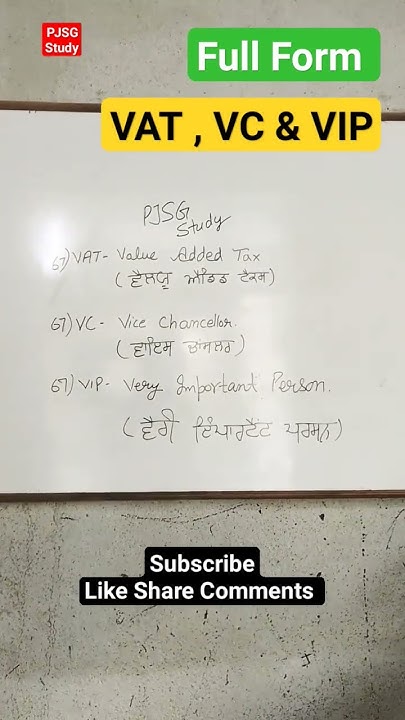 PJSG
Study
Full Form
VAT , VC & VIP
PJSG
Study
67) VAT- Value Added Tax
(ਵੈਲਯੂ ਐਡਿਡ ਟੈਕਸ)
67) VC- Vice Chancellor.
(ਵਾਇਸ ਚਾਂਸਲਰ)
67) VIP- Very Important Person.
(ਵੈਰੀ ਇੰਪਾਰਟੈਂਟ ਪਰਸਨ)
Subscribe
Like Share Comments